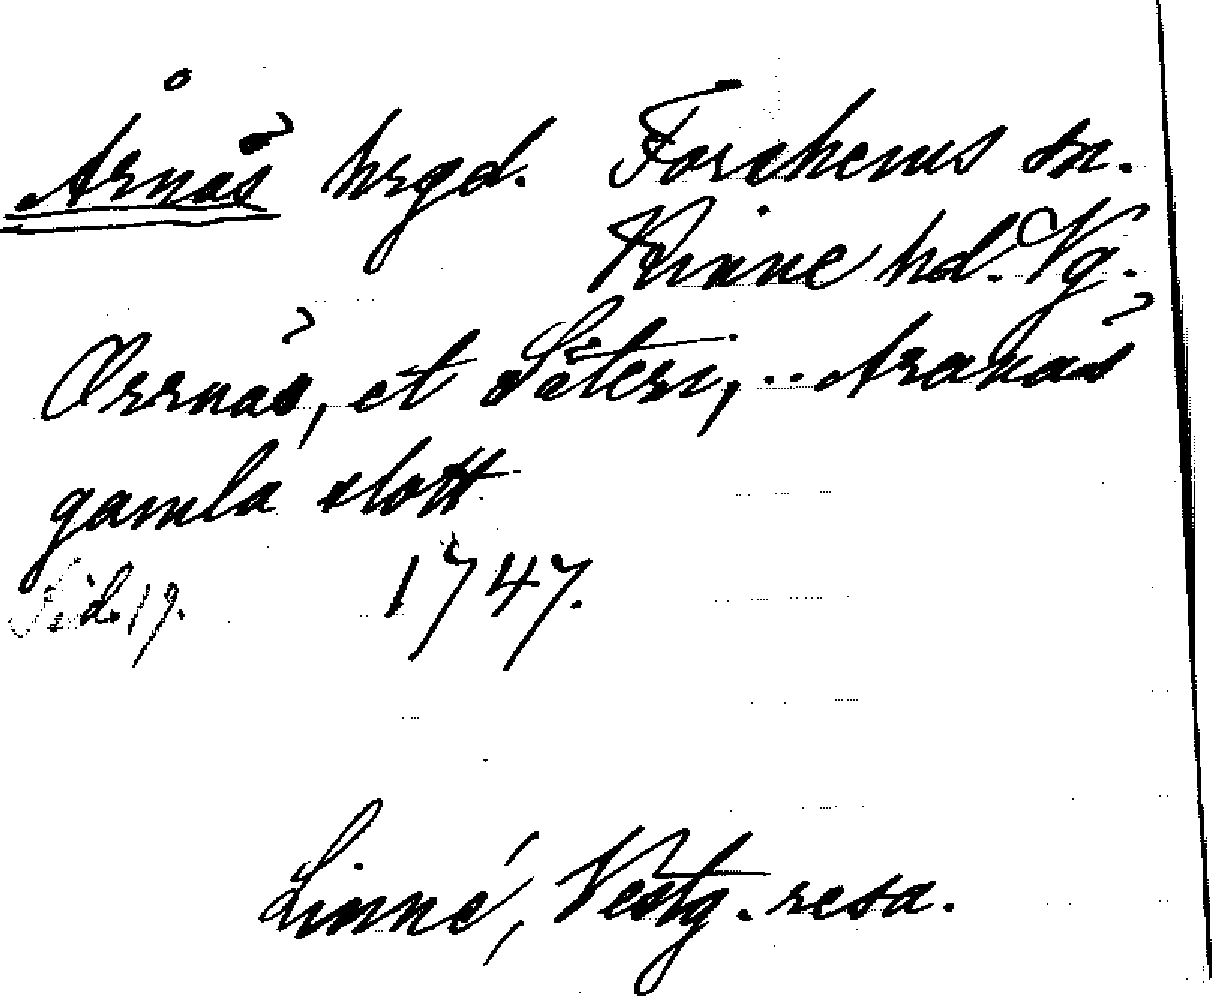 Årnäs hrgd. Forshems sn.
Kinne hd. Vg.
Orrnäs, et Säteri, .. Aranäs
gamla slott
Sid. 19. 1747.
Linné, Vestg. resa.